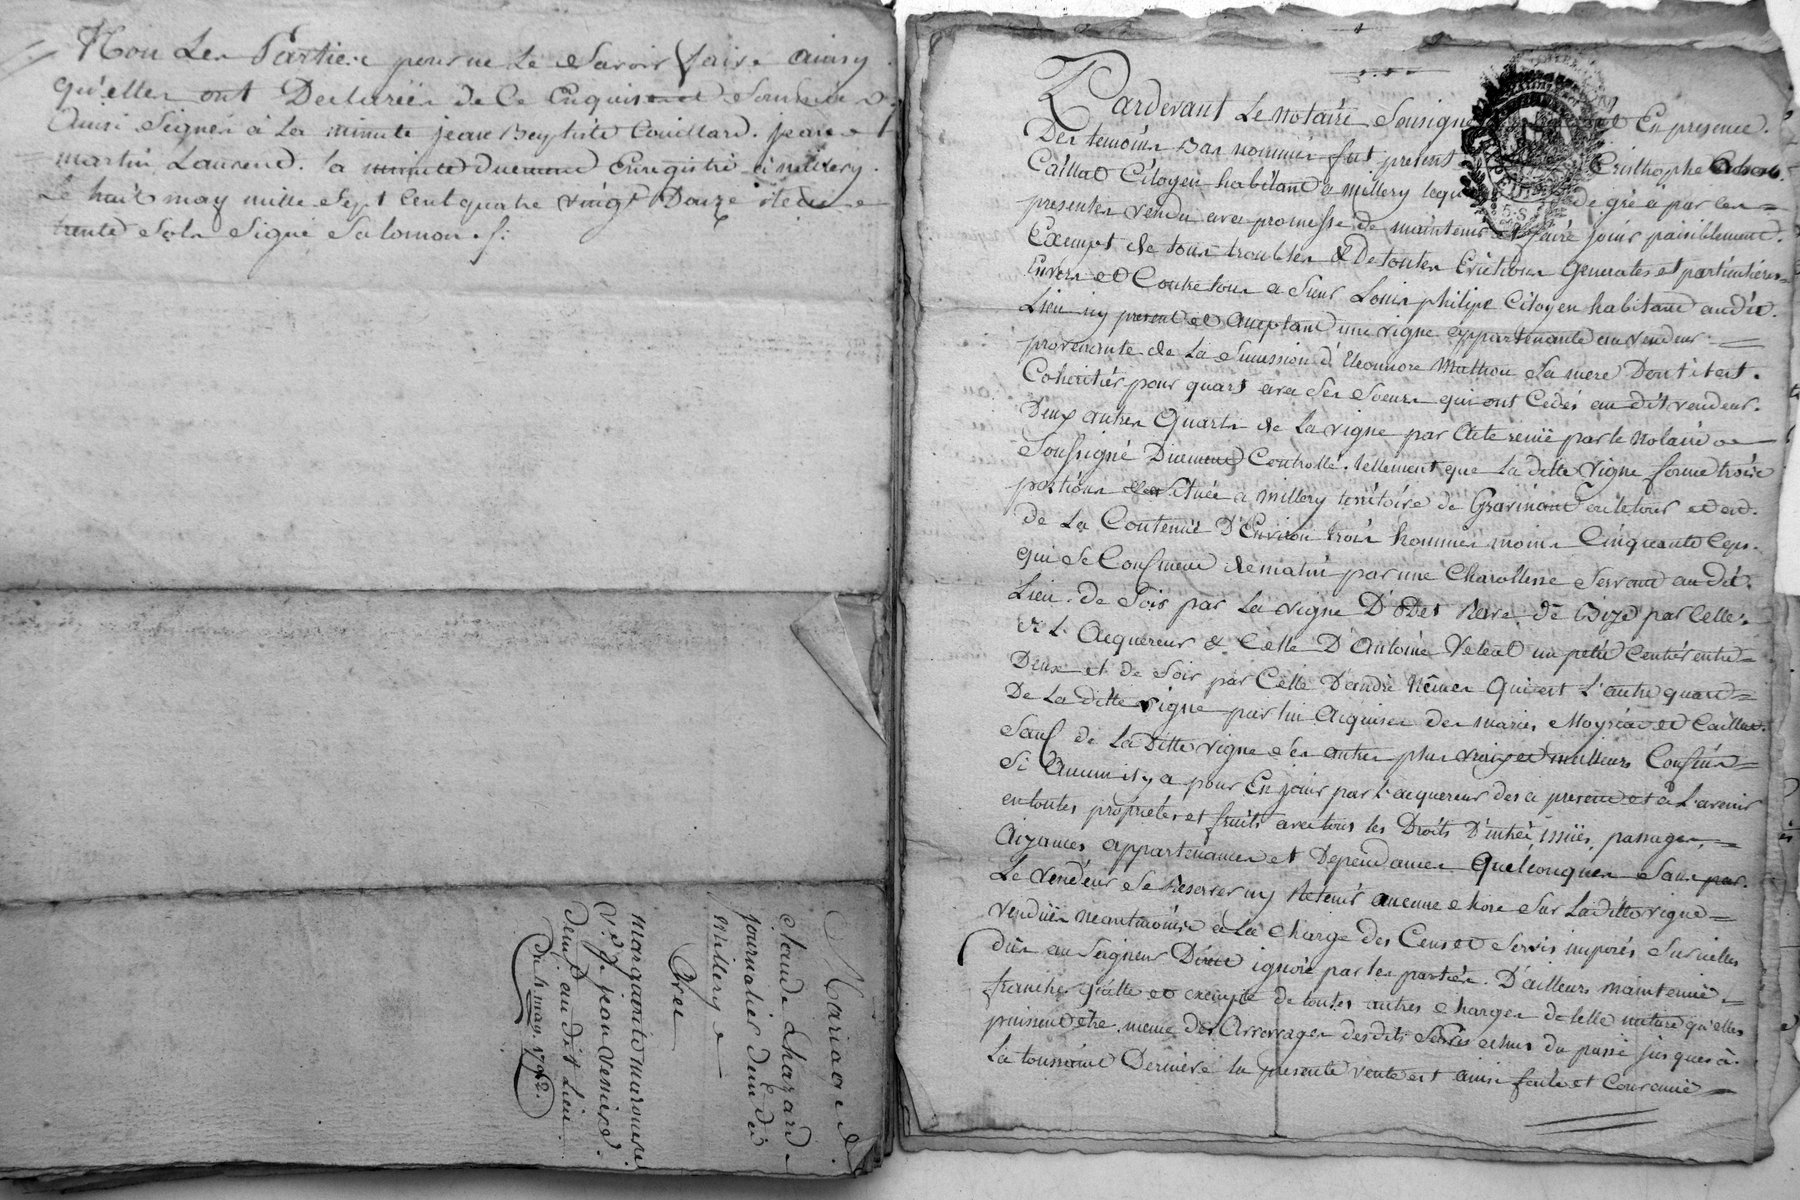 Non Les Parties pour ne le Savoir faire ainsy
qu'elles ont Declarées de Ce Enquis et Sommées
Ainsi Signés à La minute jean Baptiste Couillard. jean
martin Laurend. la minute Duement Enregistré à millery.
Le huit may mille Sept Cent quatre vingt Douze
trente Sols Signé Salomon
Mariage de
Claude Lhazard
journalier dem.t de
Millery
Avec
margueritte
V.e de jean
dem.t au dit Lieu
Du 4 may. 1792.
Pardevant Le Notaire Sousigné En presence.
Des temoins Bas nommés fut present Cristhophe
Caillat Citoyen habitant a millery lequel de gré a par ces
presentes vendu avec promesse de maintenir et faire jouir paisiblement.
Exempt de tous troubles & De toutes Evictions generales et particulieres
Envers et Contre tous a Sieur Louis philipe Citoyen habitant audit.
Lieu icy present et acceptant une vigne appartenante au vendeur
provenante de La Succession d'Eleonnore Mathon Sa mere Dont il est.
Coheritier pour quart avec Ses Soeurs qui ont Cédés au dit vendeur.
Deux autres Quarts de La vigne par Acte reçu par le Notaire
Soussigné Duement Controllé. tellement que La ditte vigne forme trois
portions Située a millery territoire de Gravinant
de La Contenue D'Environ trois hommés moins Cinquante Ceps.
qui Se Confinent de matin par une Charolliere Servant au dit.
Lieu. de Soir par La vigne D'Odet de Bize par Celle
de L'Acquereur & Celle D'Antoine un petit Centier entre
Deux et de Soir par Celle D'andré Qui est L'autre quart
De La ditte vigne par lui Acquise des maries et Caillat.
Sauf de La Ditte vigne Ses autres plus vrais et meilleurs Confins
Si Aucun il y a pour En jouir par L'acquereur des a present et à L'avenir
en toutes proprietes et fruits avec tous les Droits D'entrée, issües, passages,
Aizances, appartenances et Dependances Quelconques Sans par.
Le vendeur Se Reserver ny Retenir aucune chose Sur La ditte vigne
vendüe neantmoins à La Charge des Cens et Servis imposés Sur icelles
dûs au Seigneur Direct ignoré par les parties. D'ailleurs maintenüe
franche quitte et exempte de toutes autres charges de telle nature qu'elles
puissent être meme des Arrerages desdits Servis echus du passé jusques à
La toussaint Derniere la presente vente est ainsi faite et Convenüe